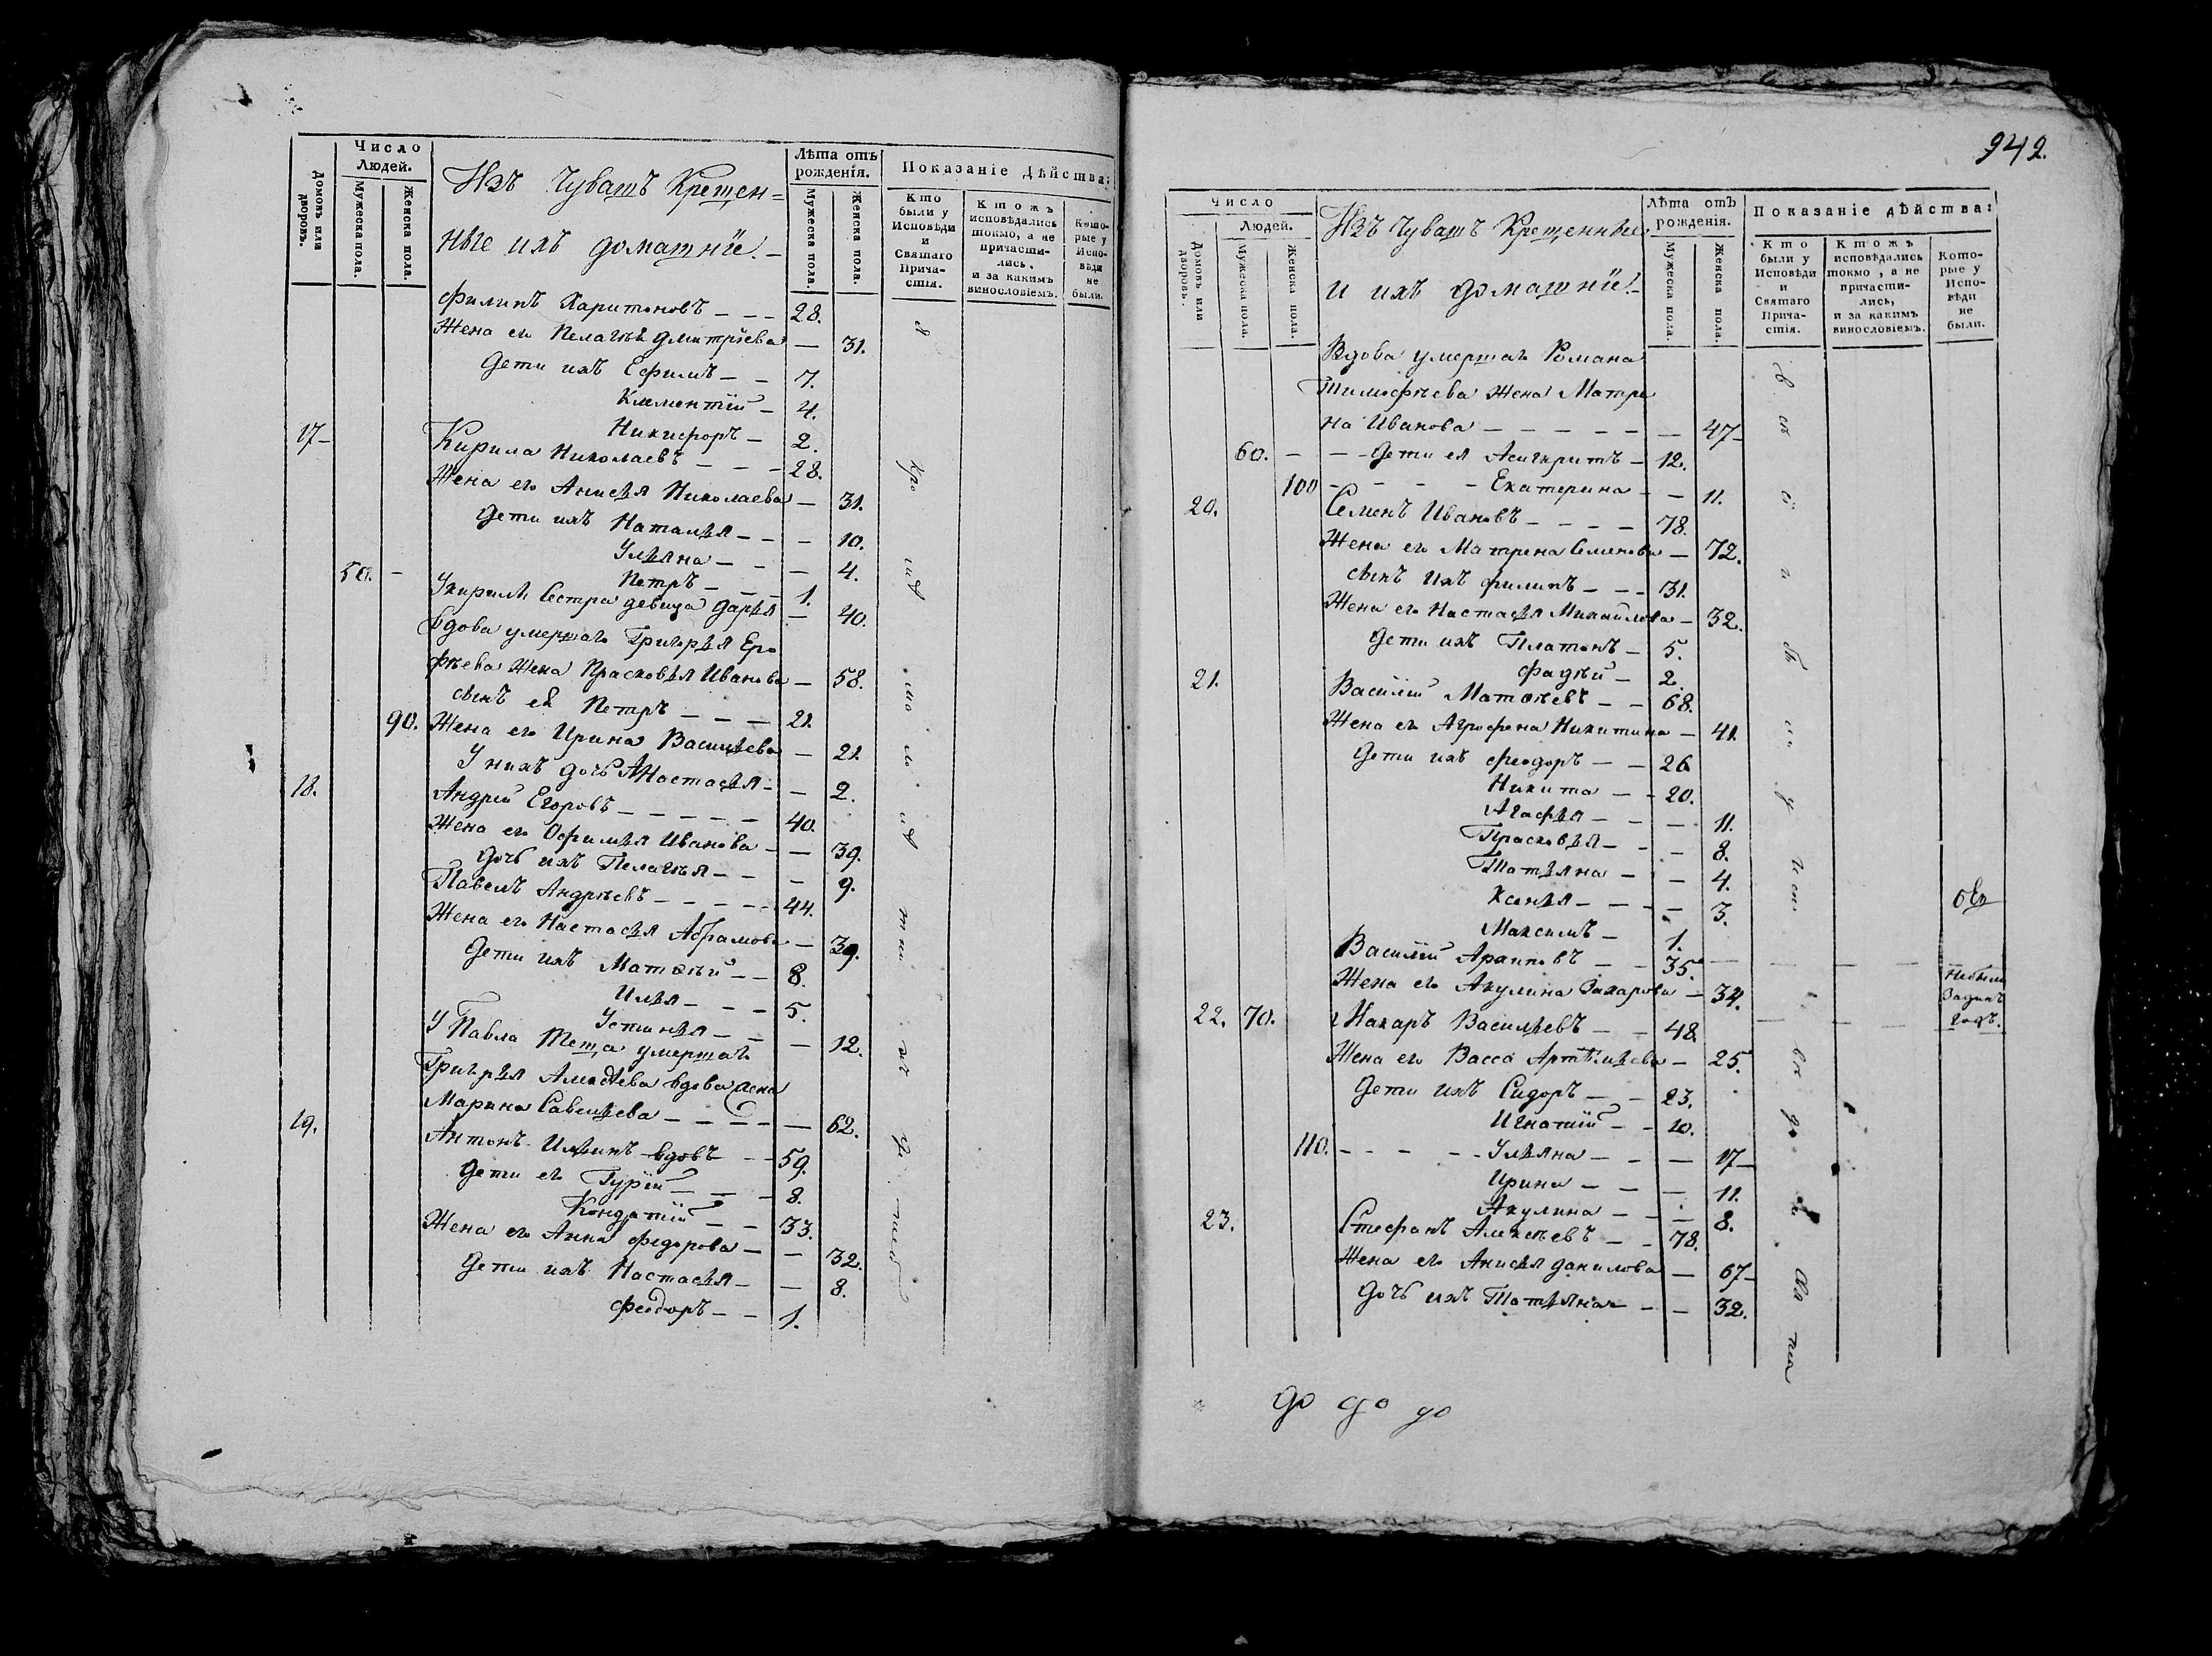 Домовъ или дворовъ.
Число Людей.
Мужеска пола.
Женска пола.
Изъ Чувашъ Крещен=
ные ихъ домашнїе. –
Лѣта отъ рожденія.
Мужеска пола.
Женска пола.
Показаніе дѣйства:
Кто были у Исповѣди и Святаго Причастія.
Ктожъ исповѣдались токмо, а не причастились, и за какимъ винословіемъ.
Которые у Исповѣди не были.
Филипъ Харитоновъ – – – 28.
Жена ево Пелагѣя Дмитрїева – 31.
Дети ихъ Ефимъ – – 7.
Климентїй – 4.
Никифоръ – 2.
17– Кирила Николаевъ – – – 28.
Жена ево Анисья Николаева – 31.
Дети ихъ Наталья – – – 10.
Ульяна – – – 4.
50. – Петръ – – – 1.
У Кирилы Сестра девица Дарья – 40.
Вдова умершаго Григорья Еро
фѣева Жена Прасковья Иванова – 58.
сынъ её Петръ – – – 21.
90. Жена ево Ирина Васильева – 21.
У нихъ дочь Анастасья – – 2.
18. Андрей Егоровъ – – – – – 40.
Жена ево Офимья Иванова – – 39.
дочь ихъ Пелагея – – – 9.
Павелъ Андрѣевъ – – – – – 44.
Жена ево Настасья Абрамова – 39.
Дети ихъ Матвѣй – – 8.
Илья – – – 5.
Устинья – – – 12.
У Павла Теща умершаго
Григорья Алексѣева вдова жена
Марина Савельева – – – – – 62.
19. Антонъ Ильинъ вдовъ – – 59.
Дети ево Гурїй – – – 8.
Кондратїй – – 33.
Жена ево Анна Федорова – – 32.
Дети ихъ Настасья – – 8.
Феодоръ – – 1.
942.
Домовъ или дворовъ.
Число Людей.
Мужеска пола.
Женска пола.
Изъ Чувашъ Крещенные
и ихъ домашнїе. –
Лѣта отъ рожденія.
Мужеска пола.
Женска пола.
Показаніе дѣйства:
Кто были у Исповѣди и Святаго Причастія.
Ктожъ исповѣдались токмо, а не причастились, и за какимъ винословіемъ.
Которые у Исповѣди не были.
Вдова умершаго Романа
Тимофѣева Жена Матре
на Иванова – – – – – – 47–
60. – – Дети ея Асигкритъ – 12.
100 – – – – Екатерина – – 11.
20. Семенъ Ивановъ – – – – 78.
Жена ево Матрена Семенова – 72.
сынъ ихъ Филипъ – – – 31.
Жена ево Настасья Михайлова – 32.
Дети ихъ Платонъ – 5.
Фадѣй – 2.
21. Василїй Матвѣевъ – – 68.
Жена ево Агрофена Никитина – 41.
Дети ихъ Феодоръ – – 26.
Никита – – 20.
Агафья – – – 11.
Прасковья – – – 8.
Татьяна – – 4.
Ксенья – – – – 3.
Максимъ – 1.
Василїй Архиповъ – – 35.
Жена ево Акулина Захарова – 34.
Небыли
Задинъ
годъ.
22. 70. Макаръ Васильевъ – – 48.
Жена ево Васса Артѣмьева – 25.
Дети ихъ Сидоръ – – 23.
Игнатїй – – 10.
110. – – – – – Ульяна – – – 17–
Ирина – – – 11.
Акулина – – – 8.
23. Стефанъ Алексѣевъ – – 78.
Жена ево Анисья Данилова – 67–
дочь ихъ Татьяна – – 32.
до до до